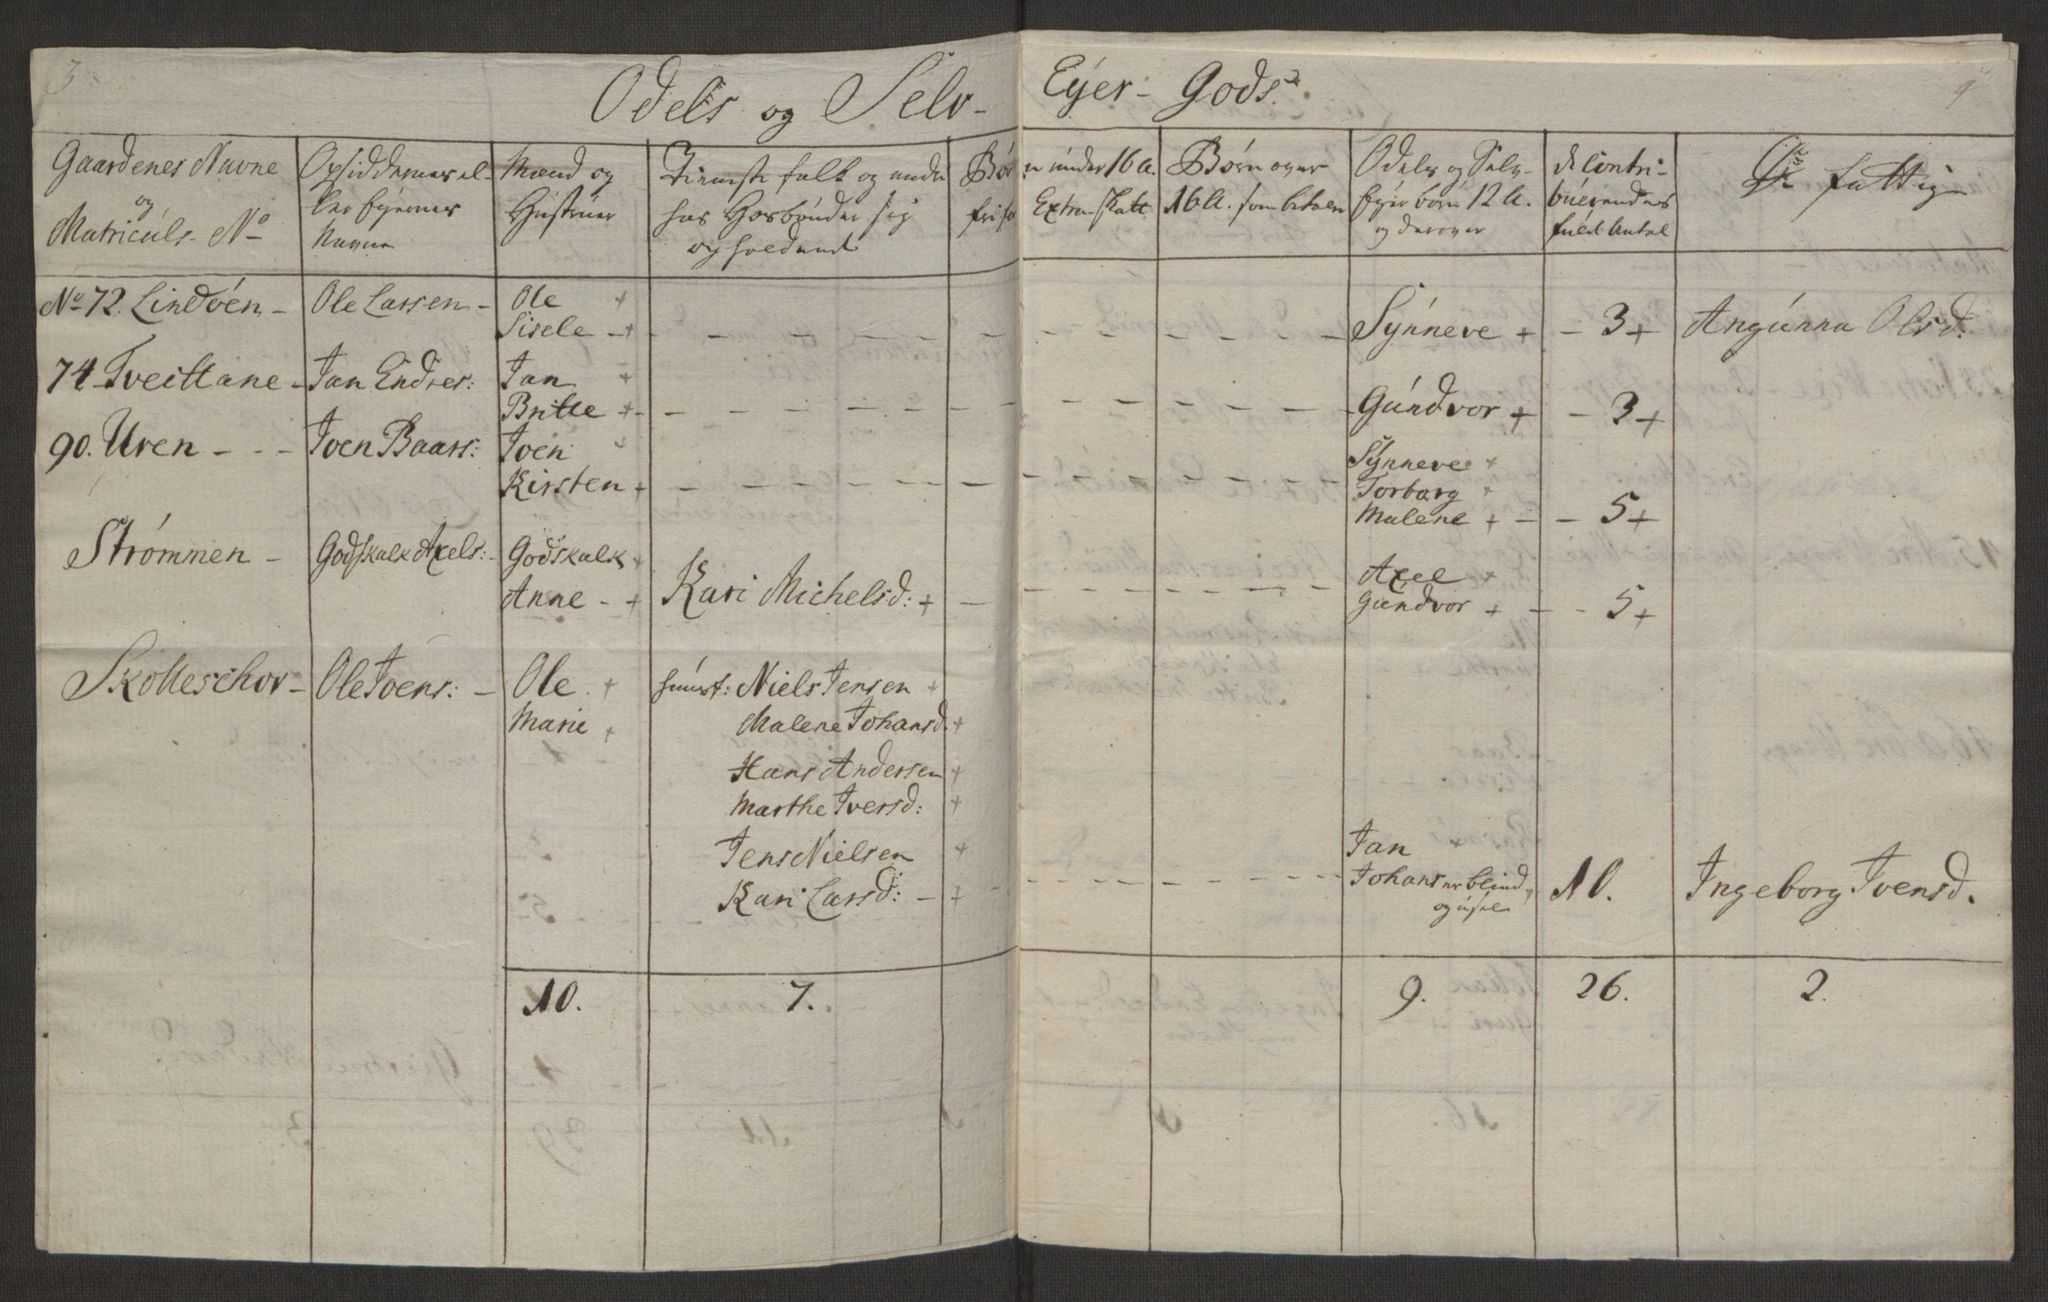 3
Odels og Selv- Eyer- Gods
9
Gaardenes Navne og Matriculs. No
Opsiddernes el- ler Eyernes Navne
Mænd og Hustruer
Tienniste folk og andre hos Hosbonder sig opholdende
Børn under 16 A. fri for Extra Skatt
Børn over 16 A. som betaler
Odels og Selv- Eyer børn 12 A. og derover
de Contri- buerendes fulde Antal
De fattige
No 72. Lindøen - Ole Lassen - Ole +
Sisele - + - - - Synneve + - 3 + Angunna Olsd:
74 Tveittane - Jan Endres: Jan +
Britte + - - - Gundvor + - 3 +
90. Uren - - - Joen Baars: Joen + Synneve +
Kirsten + - - - Torbørg +
Malene + - - 5 +
Strømmen - Godskalk Axels: - Godskalk + Axel +
Anne - + Kari Michelsd: + - - - Gundvor + - - 5 +
Skolleschor - Ole Joens: - Ole + huust: Niels Jensen +
Marie + Malene Johansd. +
Hans Andersen +
Marthe Iversd: +
Jens Nielsen + Jan +
Kari Larsd: - + - - - Johans er blind 10. Ingeborg Ivensd.
og
10. 7. 9. 26. 2.